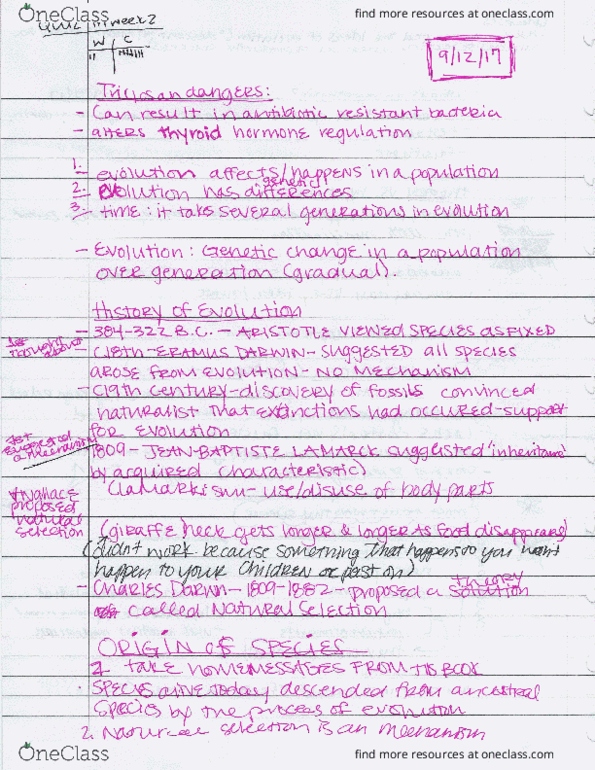 OneClass
find more resources at oneclass.com
in week 2
W C
9/12/17
Triclosan dangers:
- Can result in antibiotic resistant bacteria
- alters thyroid hormone regulation
1. evolution affects/happens in a population
genetic
2. Evolution has differences
3. time: it takes several generations in evolution
- Evolution: Genetic change in a population
over generation (gradual).
History of Evolution
- 384-322 B.C. - ARISTOTLE VIEWED SPECIES AS FIXED
1st thought about
- C18th - ERAMUS DARWIN - suggested all species
arose from evolution - NO Mechanism
- C19th Century - discovery of fossils convinced
naturalist that extinctions had occured - support
for evolution
1st suggested a mechanism
1809 - JEAN-BAPTISTE LAMARCK suggested "inheritance
by acquired characteristic)
(Lamarkism - use/disuse of body parts
*Wallace proposed natural selection
(giraffe neck gets longer & longer as food disappears)
(didn't work because something that happens to you wont
happen to your children or past on)
theory
- Charles Darwin - 1809-1882 - proposed a solution
called Natural Selection
ORIGIN OF SPECIES
2 TAKE HOMEMESSAGES FROM HIS BOOK
. SPECIES alive today descended from ancestral
species by the process of evolution
2. Natural selection is an mechanism
OneClass
find more resources at oneclass.com